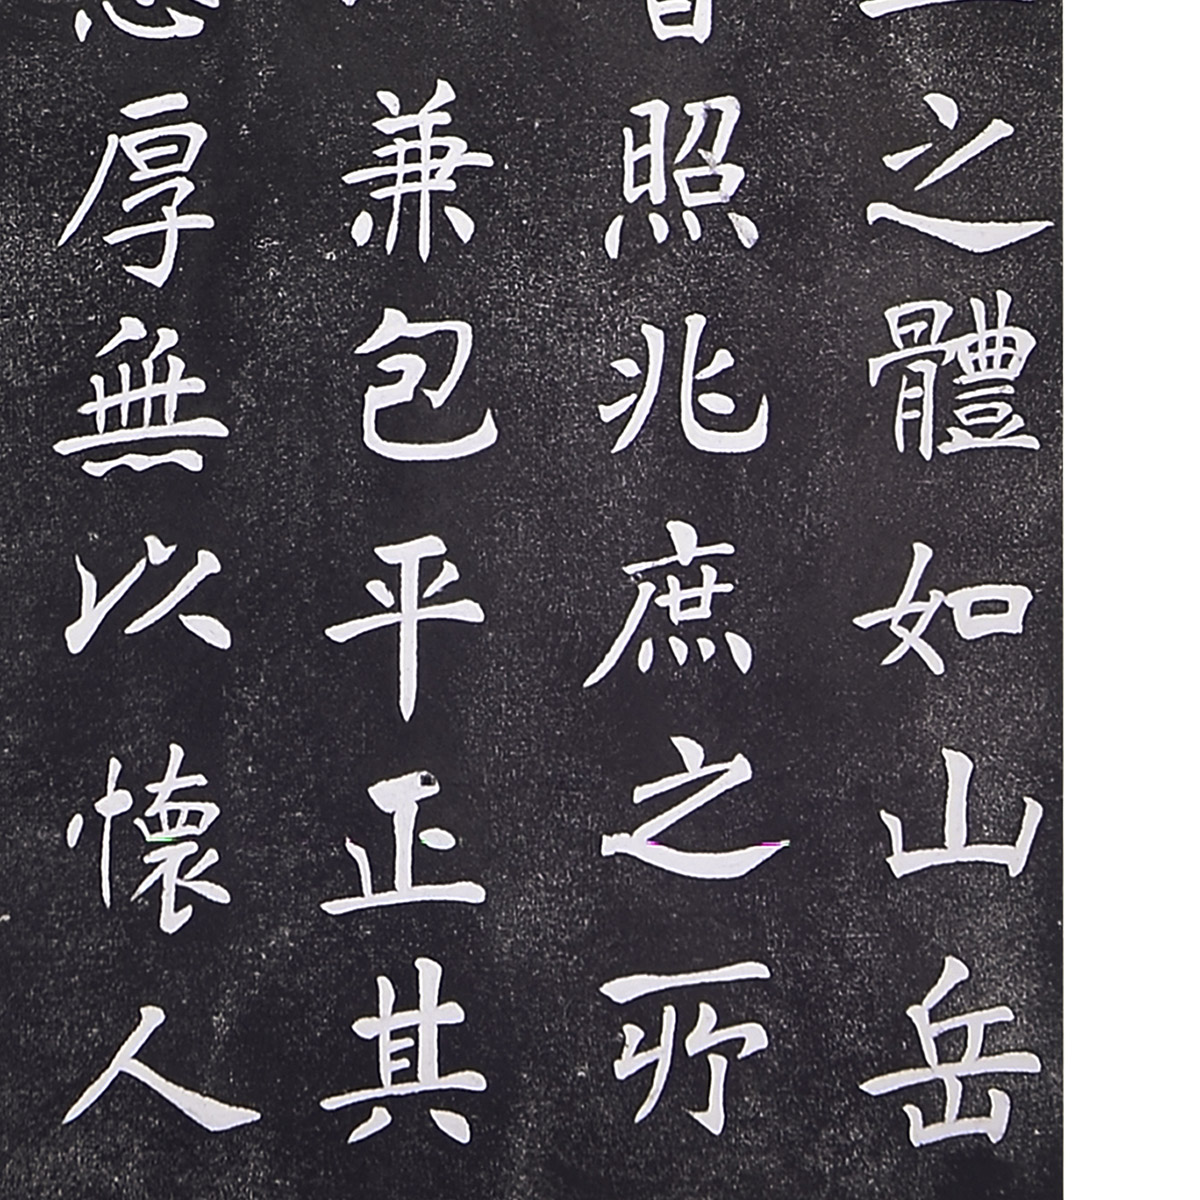 之體如山岳
照兆庶之所
兼包平正其
厚無以懷人